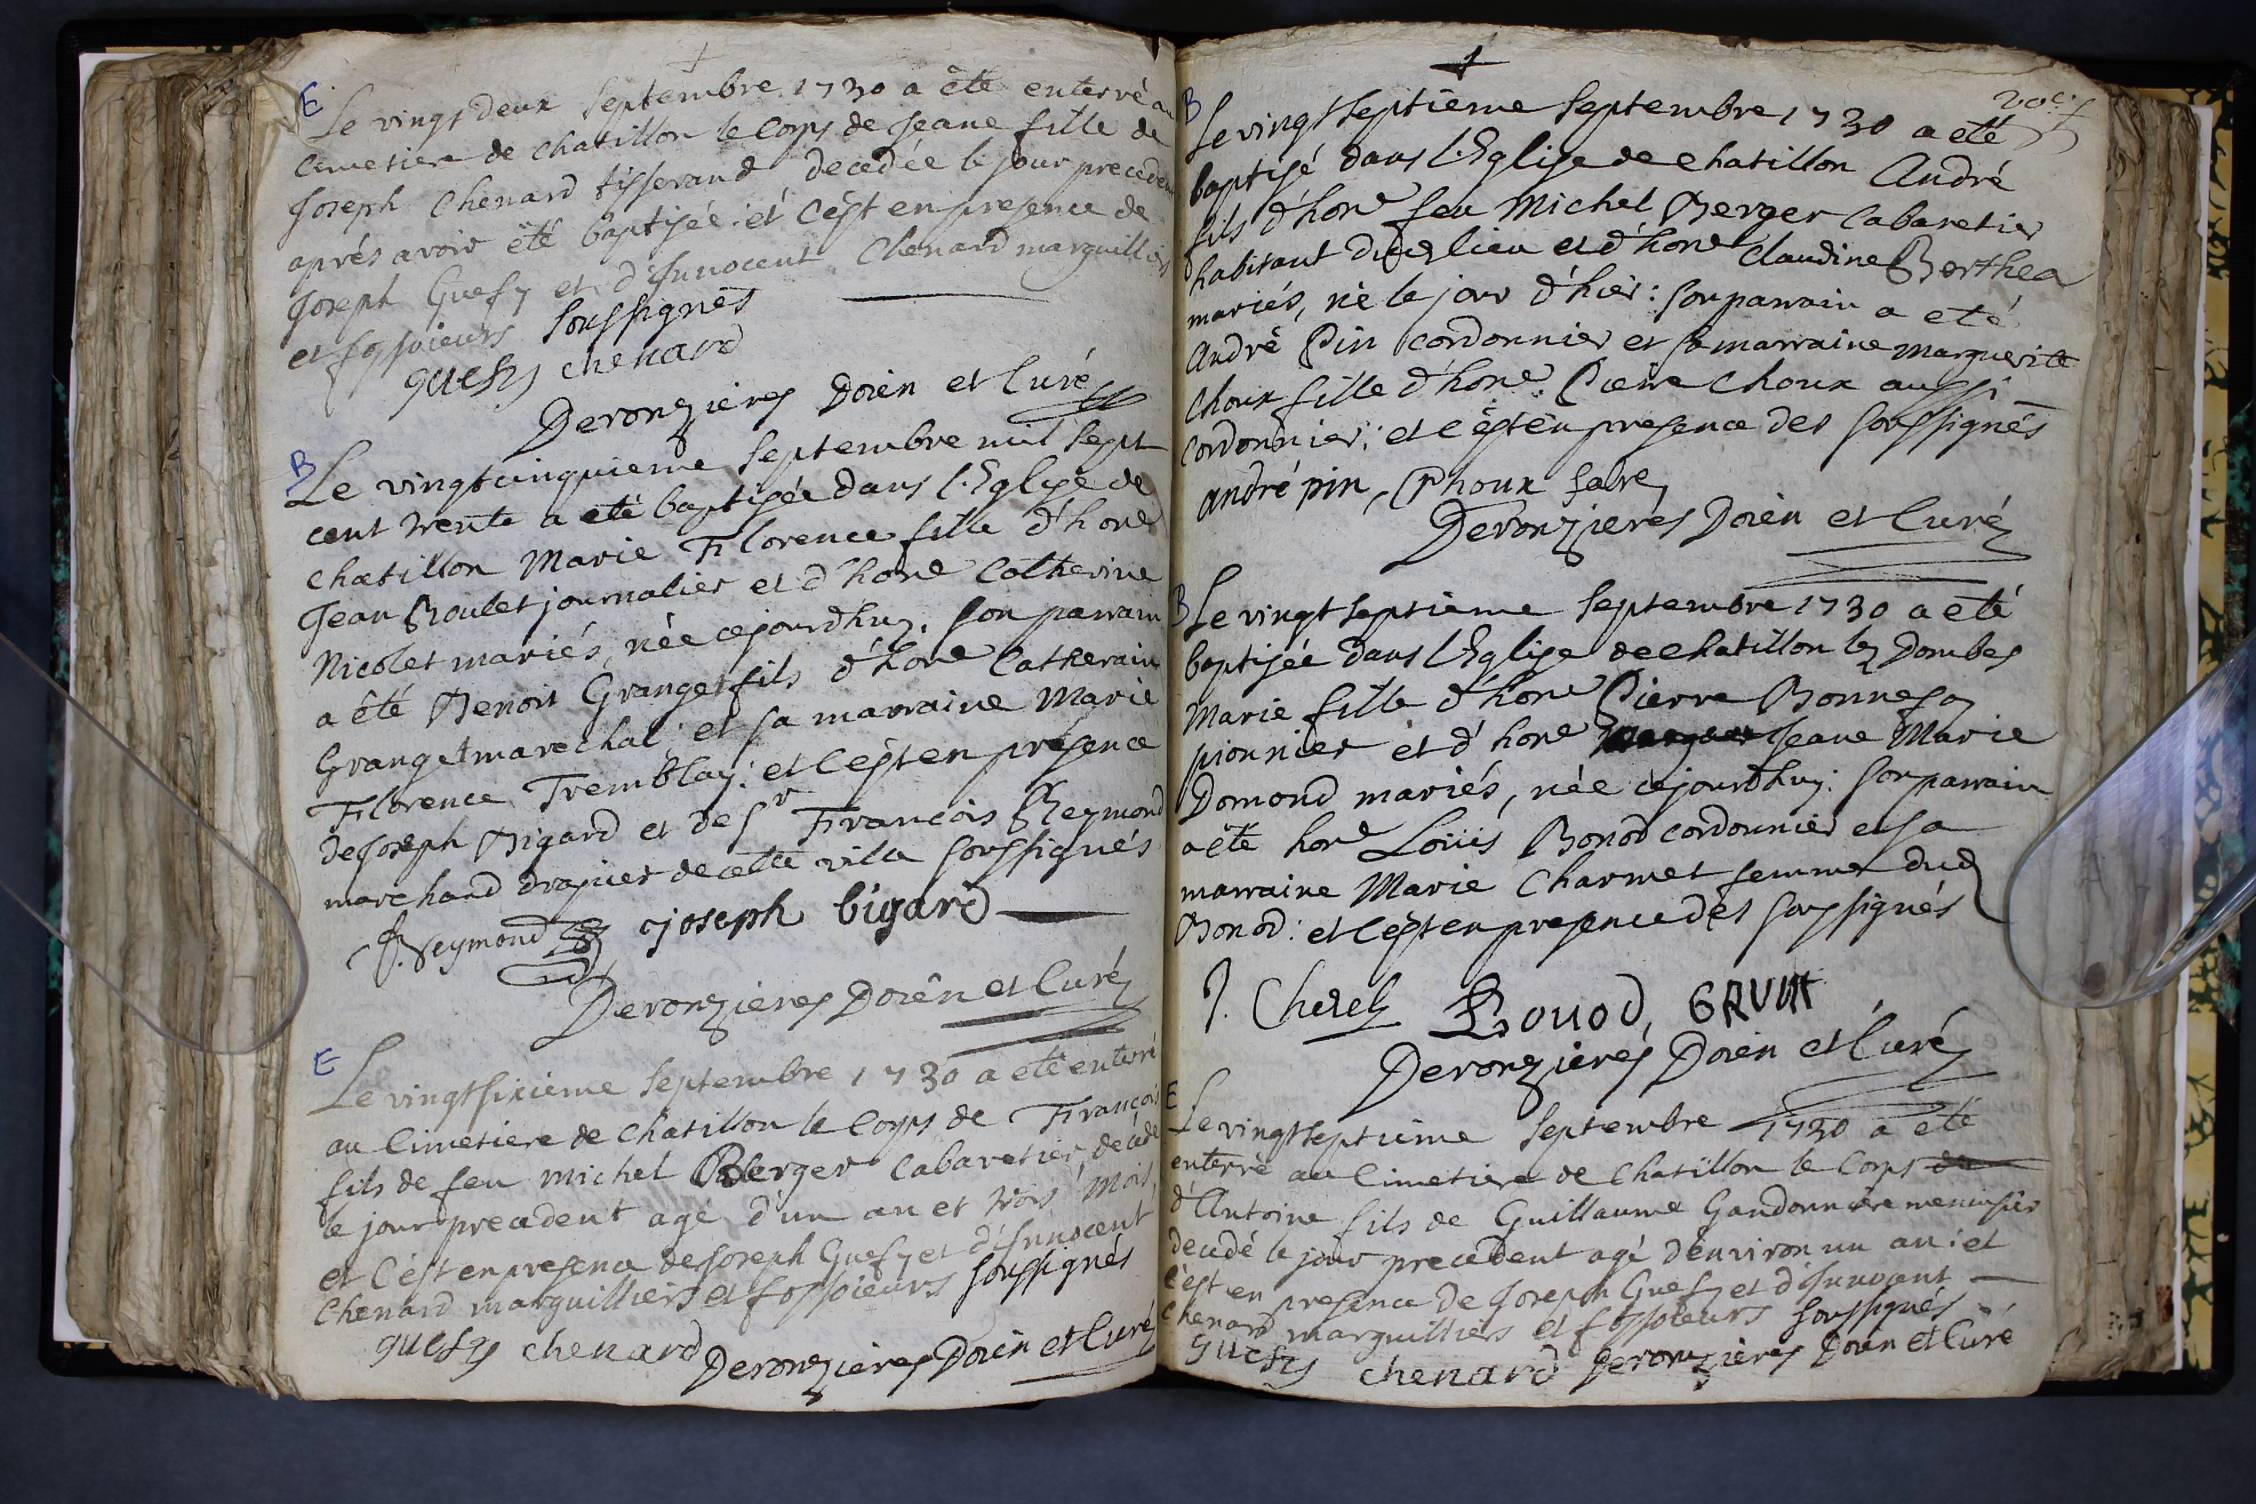 E
Le vingt deux Septembre 1730 a été enterré au
cimetiere de chatillon le Corps de Jeane fille de
Joseph Chenard tisserand decedée le jour precedent
aprés avoir été baptisée: et c'est en presence de
Joseph Guefz et d'Innocent Chenard marguilliers
et fossoieurs soussignés
guefz chenard
Deronzieres Doien et Curé
B
Le vingtcinquieme Septembre mil sept
cent trente a eté baptisée dans l'Eglise de
chatillon Marie Florence fille d'hone
Jean Boulet journalier et d'hone Catherine
Nicolet mariés, née cejourdhuy. Son parrain
a été Benoit Granget fils d'hone Catherain
Granget marechal; et sa marraine Marie
Florence Tremblay: et c'est en présence
de Joseph Bigard et de Sr François Reymond
marchand drapier de cette ville soussignés
f. Reymond joseph bigard
Deronzieres Doien et Curé
E
Le vingtsixieme Septembre 1730 a eté enterré
au Cimetiere de Chatillon le Corps de François
fils de feu Michel Berger Cabaretier, decedé
le jour precedent agé d'un an et trois mois,
et c'est en presence de Joseph Guefz et d'Innocent
Chenard marguilliers et fossoieurs soussignés
guefz chenard Deronzieres Doien et Curé
B
Le vingtseptieme Septembre 1730 a eté
baptisé dans l'Eglise de chatillon André
fils d'hone feu Michel Berger Cabaretier
habitant dud lieu et d'hone Claudine Berthea
mariés, né le jour d'hier: son parrain a eté
André Pin cordonnier et sa marraine marguerite
Choux fille d'hone Pierre Choux aussi
cordonnier; et c'est en presence des soussignés
andré pin, Phoux
Deronzieres Doien et Curé
B
Le vingtseptième Septembre 1730 a eté
baptisée dans l'Eglise de chatillon lez Dombes
Marie fille d'hone Pierre Bonnefoy
pionnier et d'hone Jeane Marie
Domond mariés, née cejourdhuy: son parrain
a eté hone Loüis Bonod cordonnier et sa
marraine Marie Charmet femme dud
Bonod: et c'est en presence des soussignés
Bonod, GRVIIt
Deronzieres Doien et Curé
E
Le vingtseptieme Septembre 1730 a eté
enterré au Cimetiere de Chatillon le Corps de
d'Antoine fils de Guillaume Gandonnière menuisier
decedé le jour precedent agé d'environ un an: et
c'est en presence de Joseph Guefz et d'Innocent
Chenard marguilliers et fossoieurs soussignés
guefz chenard Deronzieres Doien et Curé